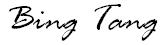 Bing Tang